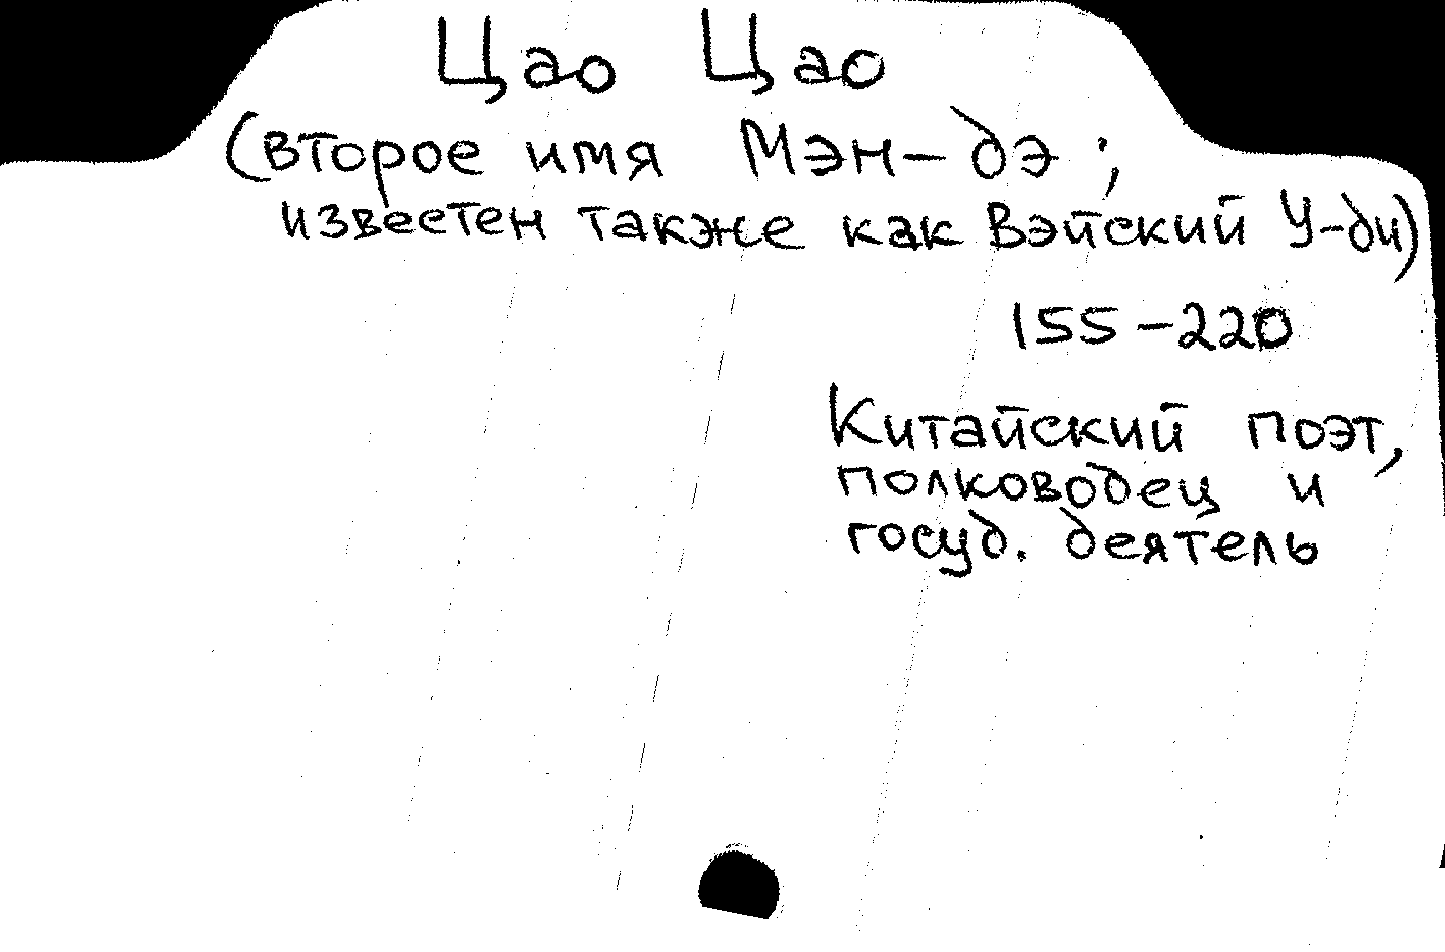 Цао Цао
(второе имя Мэн-дэ;
известен также как Вэйский У-ди)
155-220
Китайский поэт,
полководец и
госуд. деятель